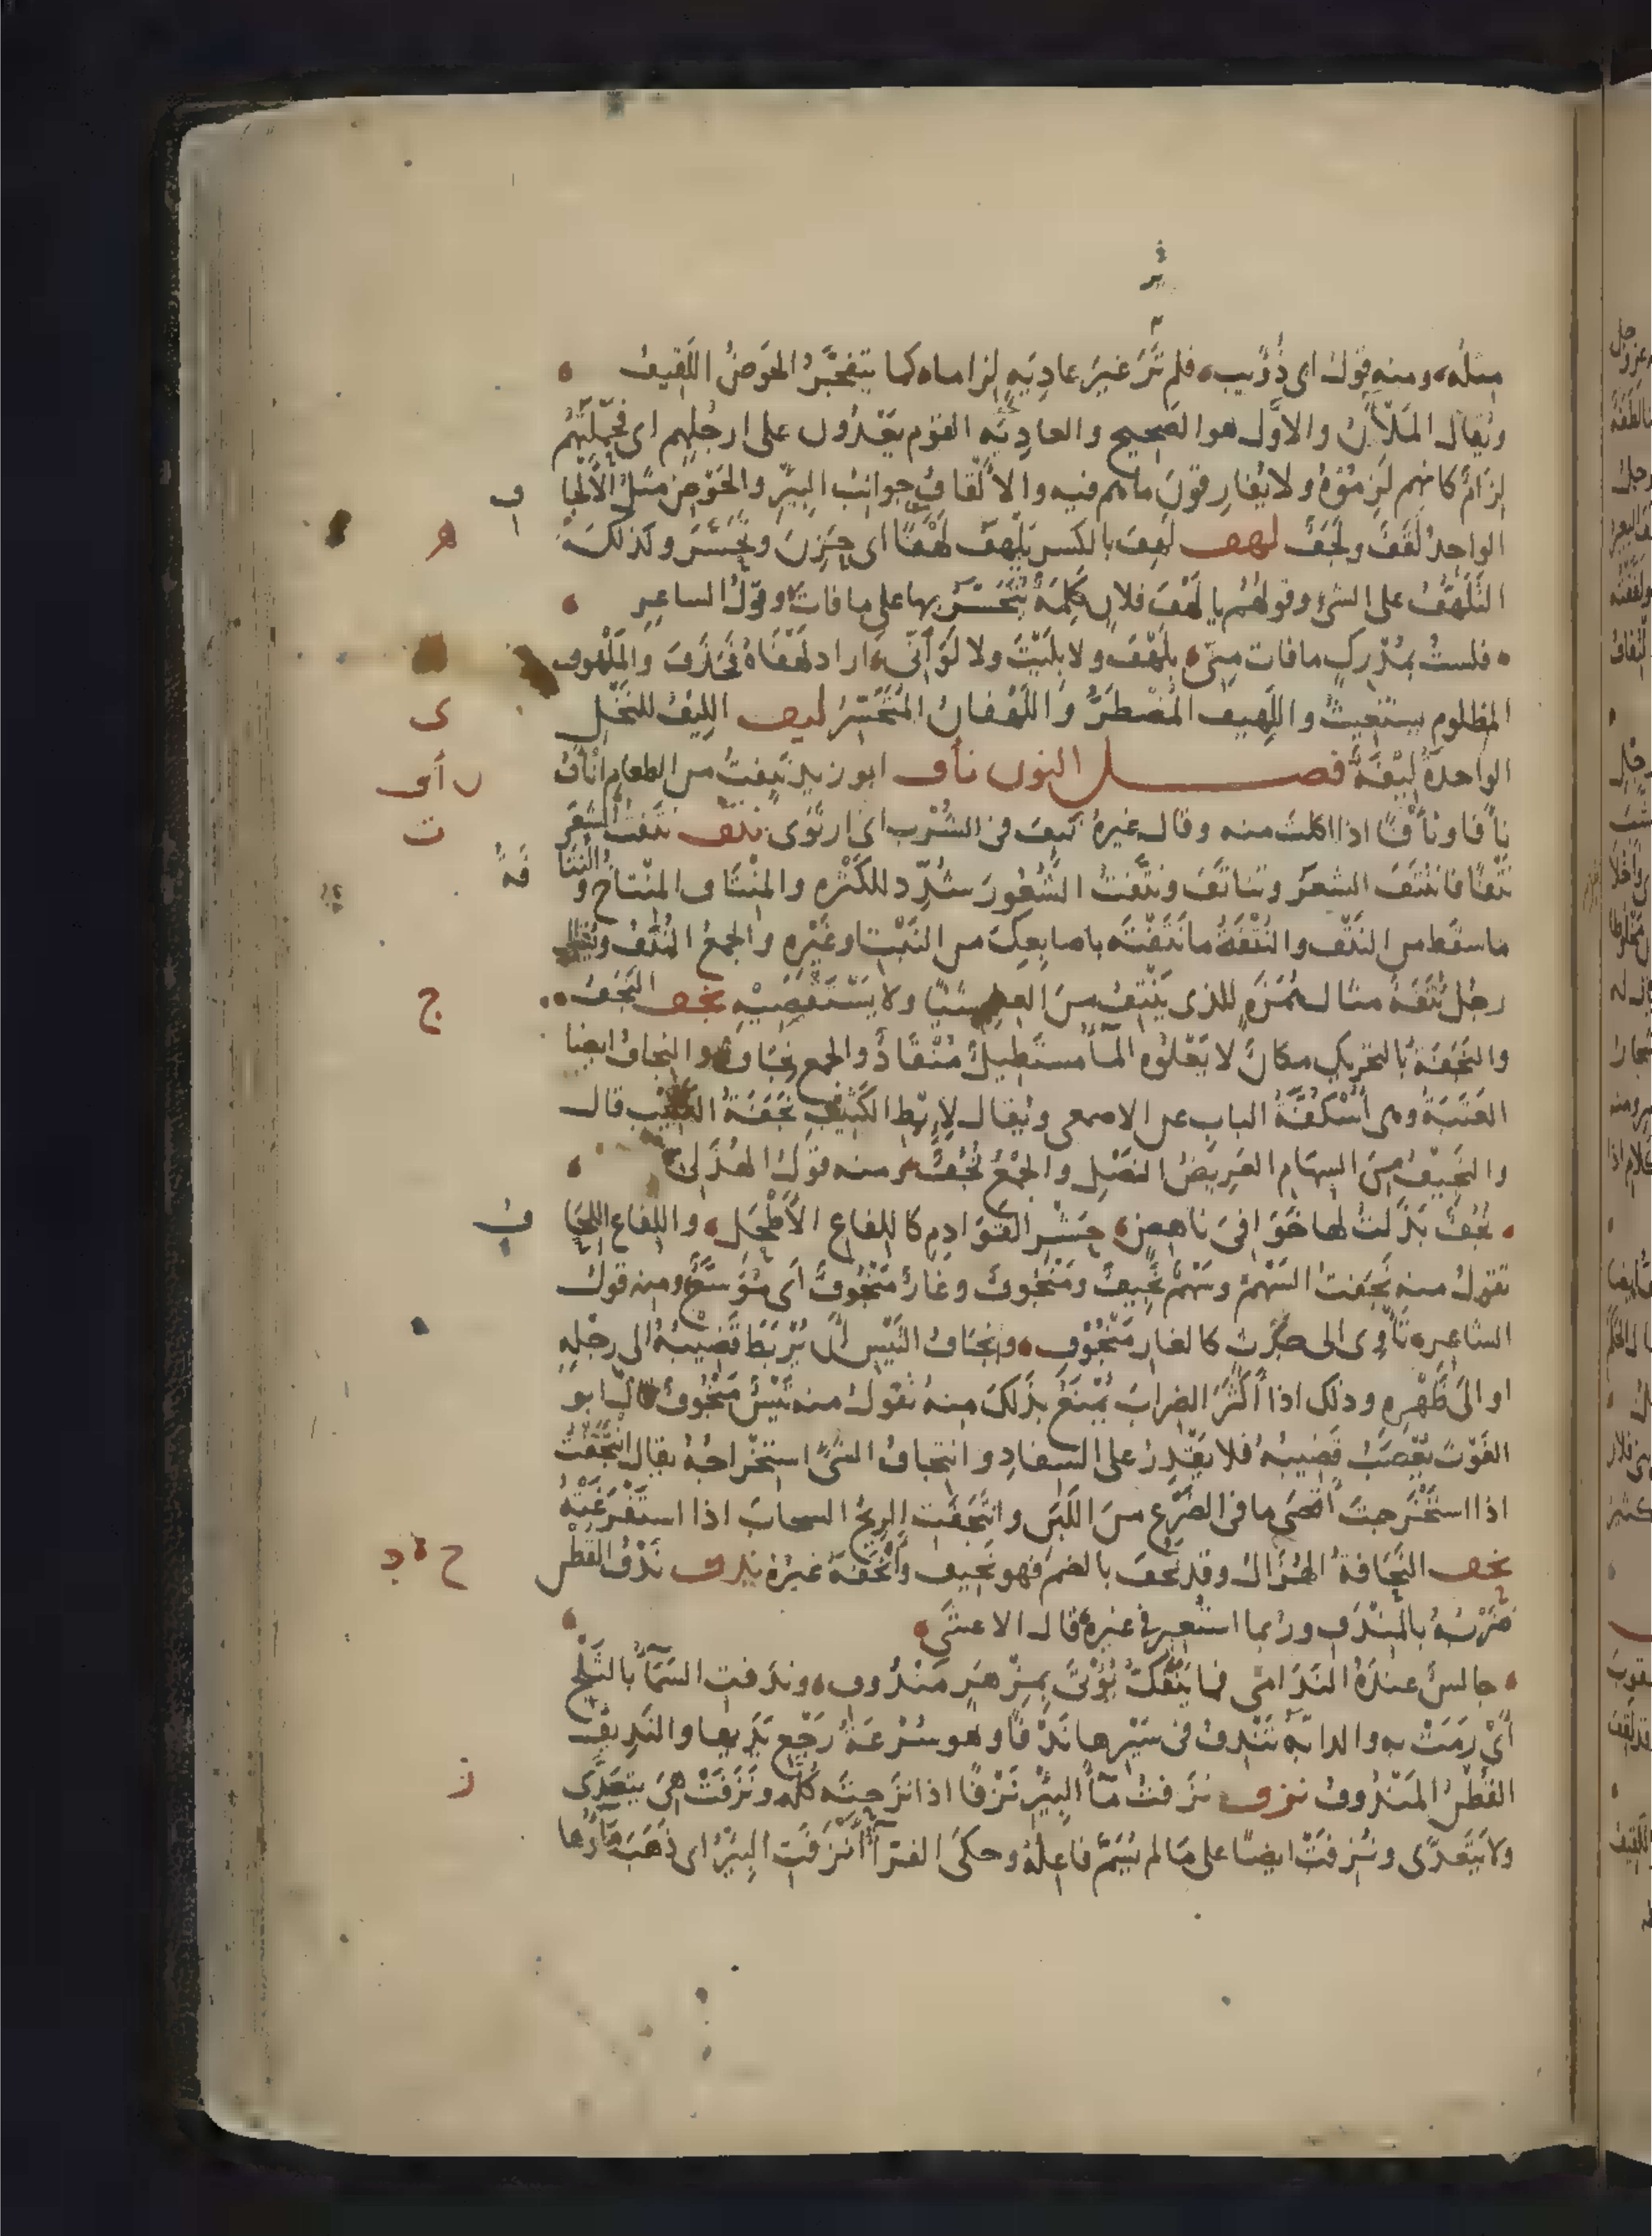 مثله، ومنه قول ابى ذُؤيب، فلم تَرَ غيرَ عادِيَةٍ لِزامًا، كما يتفجَّرُ الحَوضُ اللَّقِيفُ
ويُقال المَلآنُ والأوّل هو الصَحيح والعادِيَه القوم يَعْدُون على ارجُلِهم اى فحَمْلَتُهُم
لِزَامٌ كانهم لَزِمُوْهُ ولا يُفارِقونَ ما هم فيه والالْقَافُ جوانبُ البِئرِ والحَوْضِ مثلُ الألْجاف
الواحِدُ لَقَفٌ ولَجَفٌ لهف لَهِفَ بالكسر يَلْهفُ لَهْفًا اى حَزِنَ وتَحَسَّرَ وكذلكَ
التَّلَهُّفُ على الشئ وقولهُمْ يا لَهْفَ فلانٍ كلِمَةٌ يُتَحَسَّرُ بها على ما فاتَ وقولُ الشاعِرِ
فلستُ بمُدْرِكٍ ما فات مِنّى، بلَهْفَ ولا بلَيْتَ ولا لَوَ أنّى، اراد لَهْفَاهُ فحَذَفَ والمَلْهوف
المظلوم يستغيثُ واللَهيف المُضْطَرُّ واللَّهْفانُ المُتَحَسِّرُ ليف اللِيْفُ للنَخْلِ
الواحدَةُ لِيْفَةٌ فصل النون نأف ابو زيد نَئِفتُ من الطعام انْأَفُ
نأفًا ونأَفًا اذا اكلتَ منه وقال غيرهُ نَئِفَ فى الشُرْب اى ارتَوَى نتف نتَفتُ الشَعَرَ
نَتْفًا فانْتَتَفَ الشعَرُ وتناتَفَ ونتَّفتُ الشُّعُورَ شُدِّد للكَثْرهِ والمِنْتَاف المِنْتاخ والنُتَافَةُ
ما سقَط من النَتْف والنُتْفَةُ ما نَتَفْتَه باصابِعِكَ من النَبْتِ او غَيْرِهِ والجمعُ النُتَفُ ويُقال
رجُل نُتَفَةٌ مثال هُمَزَةٍ للذى يَنْتِفُ منَ العِلم شَيْئًا ولا يَسْتَقْصِيْهِ نجف النَجَفُ
والنَجَفَةُ بالتحريكِ مكانٌ لا يَعْلُوه المآءُ مستَطِيلٌ مُنْقَادٌ والجمع نِجَاف والنِجافُ ايضا
العَتَبَةُ وهى أُسْكُفَّةُ البابِ عن الاصمعى ويُقال لإبِطِ الكَثيْبِ نَجَفَةُ الكَثِيْبِ قال
والنَجِيْفُ مِنَ السِهَام العَرِيضُ النصْلِ والجَمْعُ نُجُفٌ ومنه قولُ الهُذَلىِّ
نُجُفٌ بَذَلتُ لها خَوَافىَ ناهضٍ، حَشْرِ القَوَادِمِ كاللِفاع الأَطْحَلِ، واللِفاع اللِحاف
تقولُ منه نَجَفتُ السَهْمَ وسَهْمٌ نَجِيفٌ ومَنْجُوفٌ وغارٌ مَنْجُوفٌ أى مُوَسَّعٌ ومنه قول
الشاعر، تَأْوِى الى جَدَثٍ كالغارِ مَنْجُوْفِ، ونِجَافُ التَيْسِ أن يُرْبَطَ قَضِيْبُهُ الى رِجْلِهِ
او الى ظَهْرِهِ وذلك اذا أكثَرَ الضِرابَ يُمْنَعُ بذَلكَ مِنهُ تقولُ منه تَيْسٌ مَنْجُوفٌ قال ابو
الغَوْثِ يُعْصَبُ قَضِيبُهُ فلا يَقْدِرُ على السِفادِ وانتجافُ الشئِ استخْراجُهُ يقال انتجَفْتُ
اذا استَخْرجتَ أقصَى ما فى الضَرْعِ منَ اللَبَنِ وانتَجَفَتِ الريحُ السحابَ اذا استَفْرَغَتْهُ
نحف النَّحَافةُ الهُزَالُ وقد نَحُفَ بالضم فهو نحِيف وأَنْحَفَهُ غيرُهُ ندف نَدْفُ القُطْنِ
ضَرْبُهُ بالمِنْدَفِ ورُبما استُعِيرَ فى غيرِهِ قال الاعشَى
جالسٌ عِندَهُ النَدَامَى فما يَنْفَكُّ يُؤْتىَ بمِزْهَرٍ مَنْدُوف، وندَفتِ السَمآءُ بالثَلْجِ
أَىْ رَمَتْ بهِ والدابّه تَنْدِفُ فى سَيْرِها نَدْفًا وهو سُرْعَةُ رَجْعِ يَدَيها والنَدِيفُ
القُطْنُ المَنْدُوفُ نزف نزَفتُ مآءَ البِئْرِ نَزْفًا اذا نزَحتَهُ كُلَّه ونَزَفَتْ هِىَ يتعَدّى
ولا يَتَعَدَّى ونُزِفَتْ ايضًا على ما لم يُسَمَّ فاعِلُهُ وحكَى الفرّآءُ أَنْزَفَتِ البِئرُ اى ذَهَبَ مَآؤُها
ه
ى
ن أف
ت
ج
ح د
ز